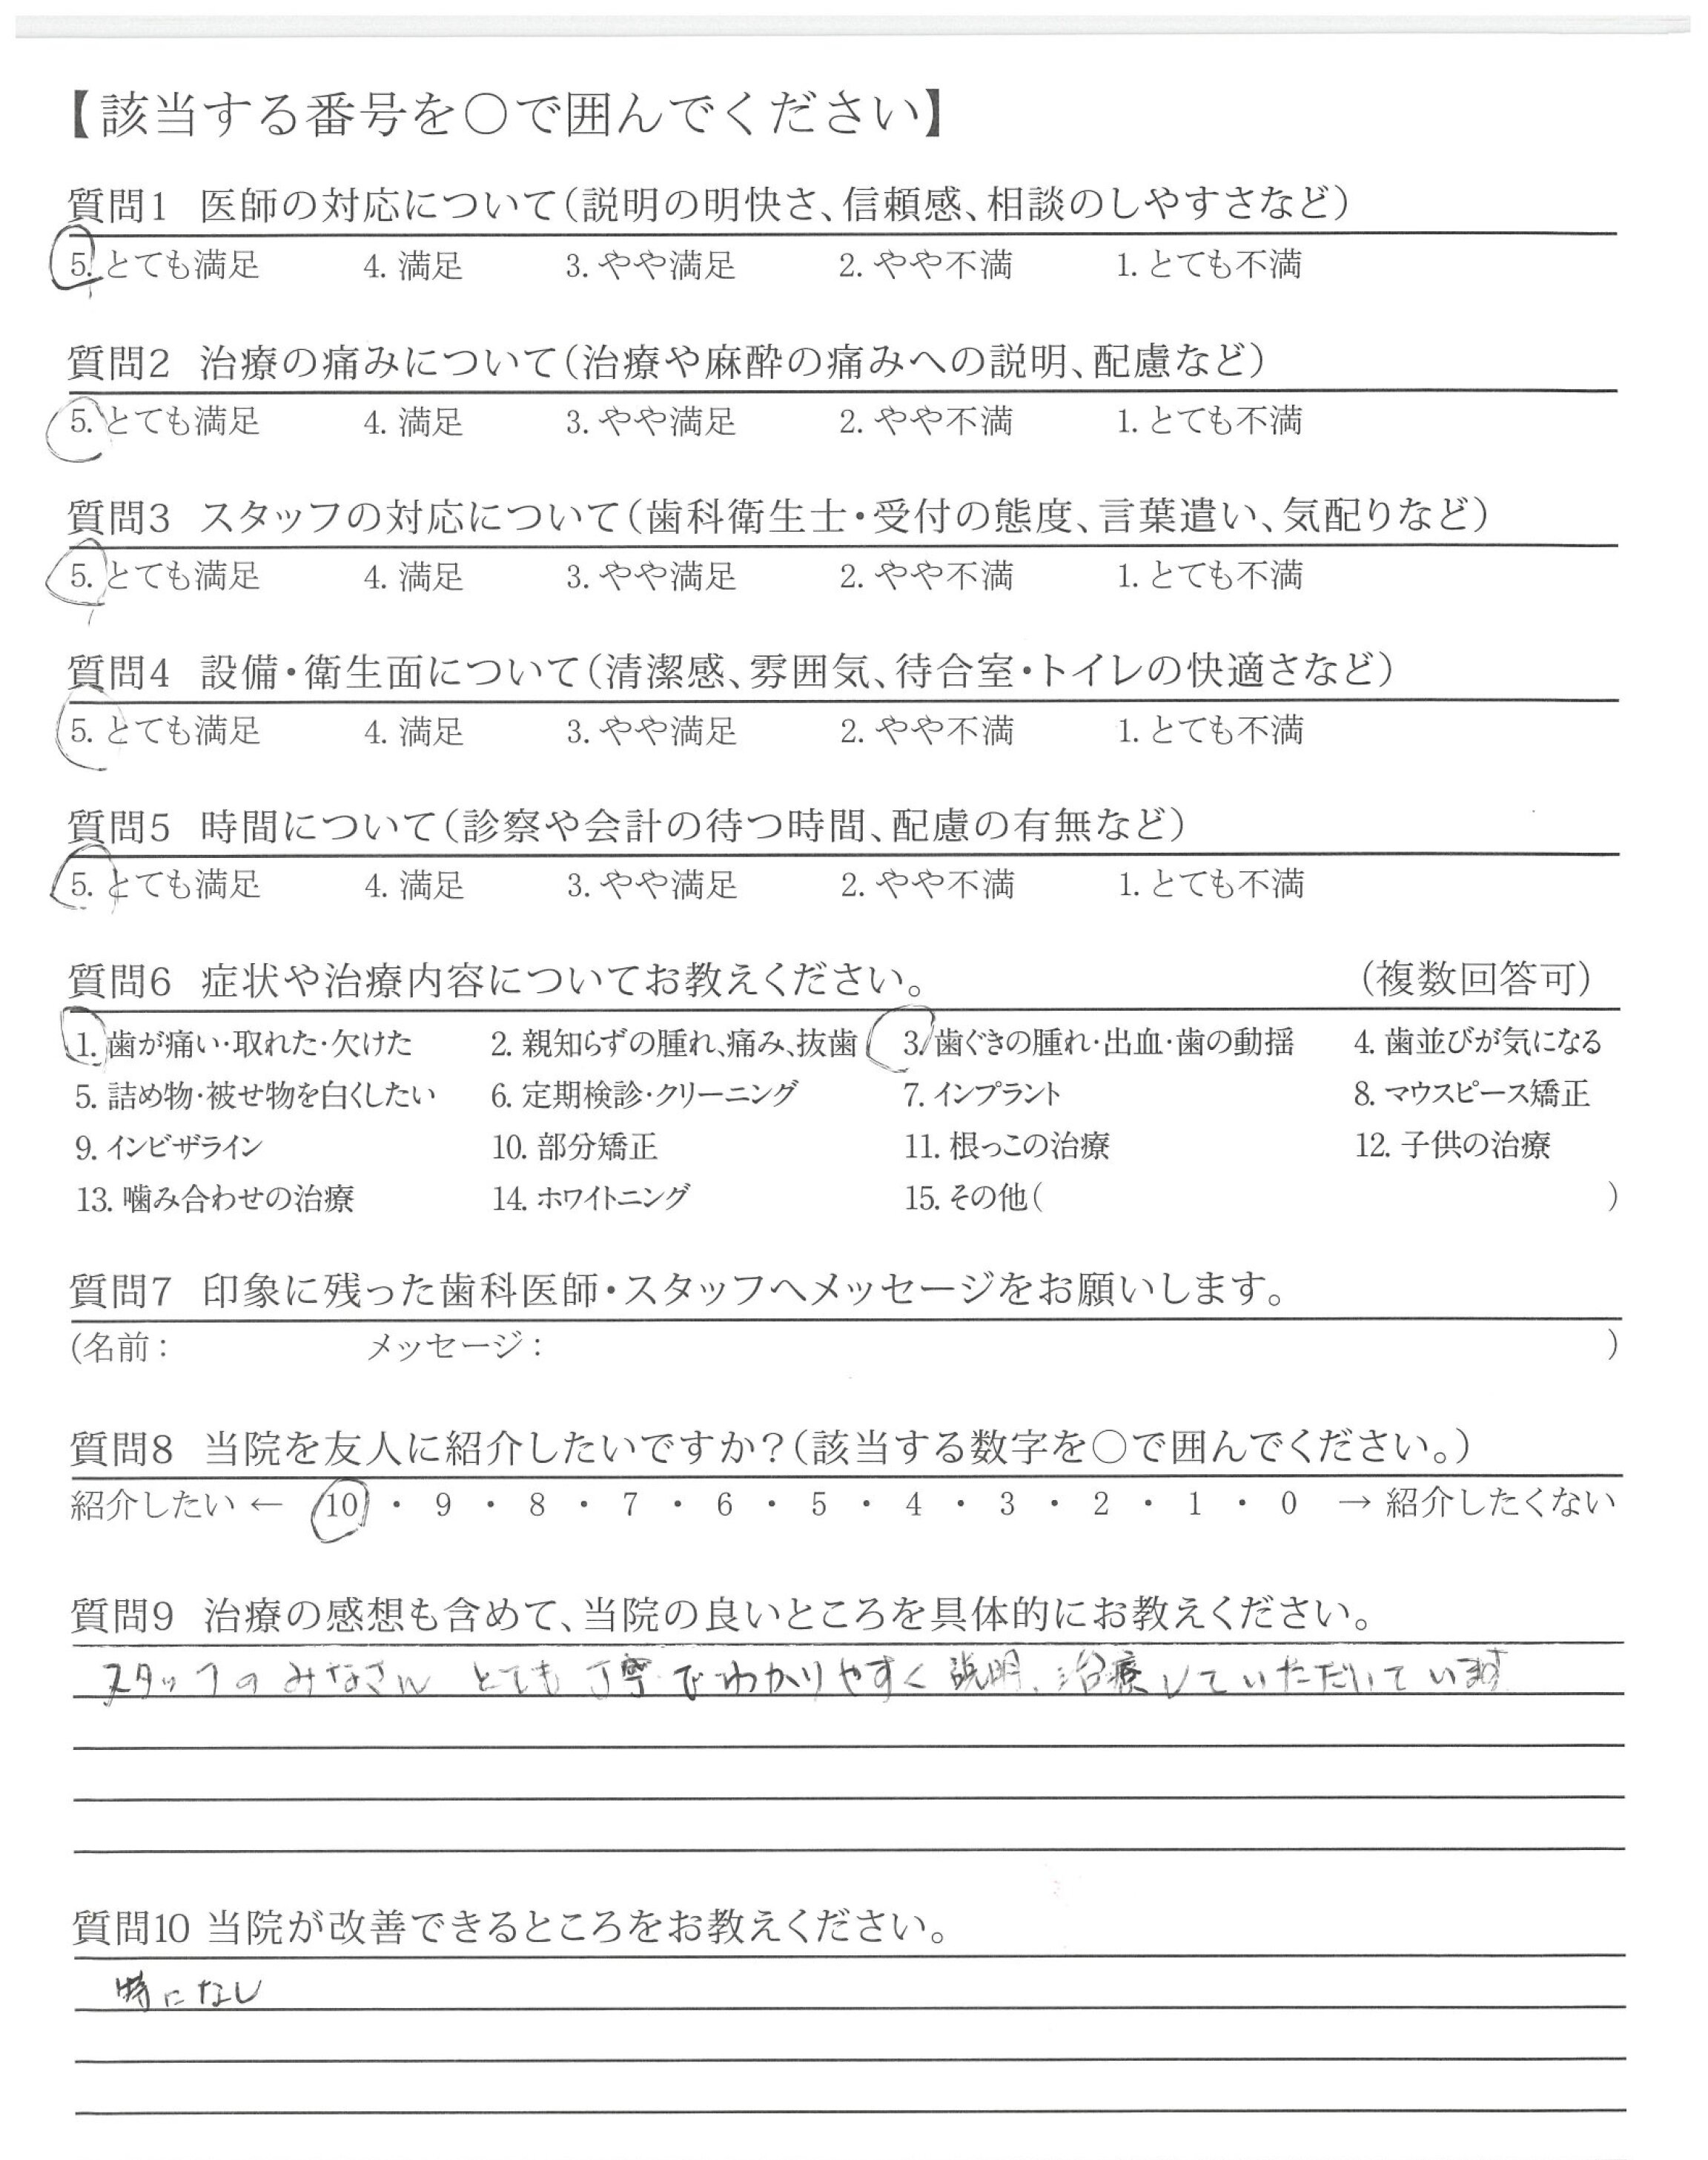 【該当する番号を〇で囲んでください】
質問1 医師の対応について(説明の明快さ、信頼感、相談のしやすさなど)
5. とても満足 4. 満足 3. やや満足 2. やや不満 1. とても不満
質問2 治療の痛みについて(治療や麻酔の痛みへの説明、配慮など)
5. とても満足 4. 満足 3. やや満足 2. やや不満 1. とても不満
質問3 スタッフの対応について(歯科衛生士・受付の態度、言葉遣い、気配りなど)
5. とても満足 4. 満足 3. やや満足 2. やや不満 1. とても不満
質問4 設備・衛生面について(清潔感、雰囲気、待合室・トイレの快適さなど)
5. とても満足 4. 満足 3. やや満足 2. やや不満 1. とても不満
質問5 時間について(診察や会計の待つ時間、配慮の有無など)
5. とても満足 4. 満足 3. やや満足 2. やや不満 1. とても不満
質問6 症状や治療内容についてお教えください。 (複数回答可)
1. 歯が痛い・取れた・欠けた 2. 親知らずの腫れ、痛み、抜歯 3. 歯ぐきの腫れ・出血・歯の動揺 4. 歯並びが気になる
5. 詰め物・被せ物を白くしたい 6. 定期検診・クリーニング 7. インプラント 8. マウスピース矯正
9. インビザライン 10. 部分矯正 11. 根っこの治療 12. 子供の治療
13. 噛み合わせの治療 14. ホワイトニング 15. その他( )
質問7 印象に残った歯科医師・スタッフへメッセージをお願いします。
(名前: メッセージ: )
質問8 当院を友人に紹介したいですか?(該当する数字を〇で囲んでください。)
紹介したい ← 10 ・ 9 ・ 8 ・ 7 ・ 6 ・ 5 ・ 4 ・ 3 ・ 2 ・ 1 ・ 0 → 紹介したくない
質問9 治療の感想も含めて、当院の良いところを具体的にお教えください。
スタッフのみなさん とても丁寧でわかりやすく説明、治療していただいています
質問10 当院が改善できるところをお教えください。
特になし